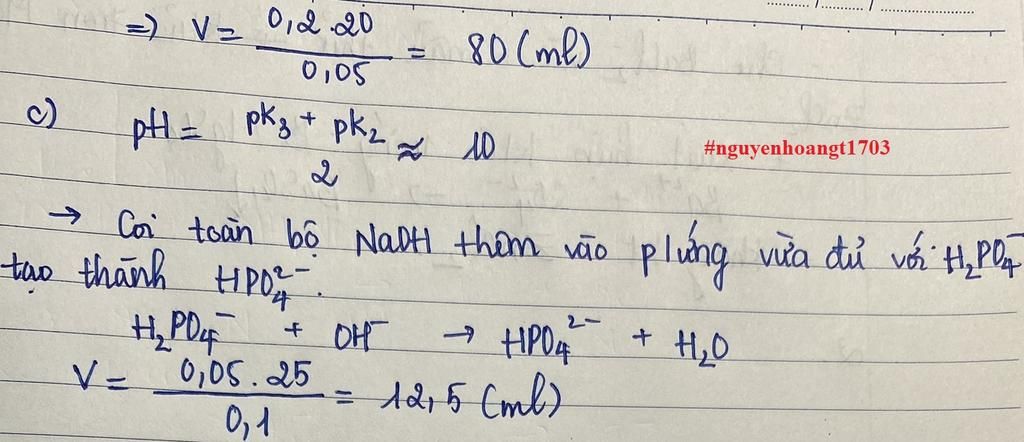 =) V = 0,2.20 / 0,05 = 80 (ml)
c) pH = pK3 + pK2 / 2 ≈ 10
#nguyenhoangt1703
→ Coi toàn bộ NaOH thêm vào p/ứng vừa đủ với H₂PO₄⁻
tạo thành HPO₄²⁻.
H₂PO₄⁻ + OH⁻ → HPO₄²⁻ + H₂O
V = 0,05.25 / 0,1 = 12,5 (ml)